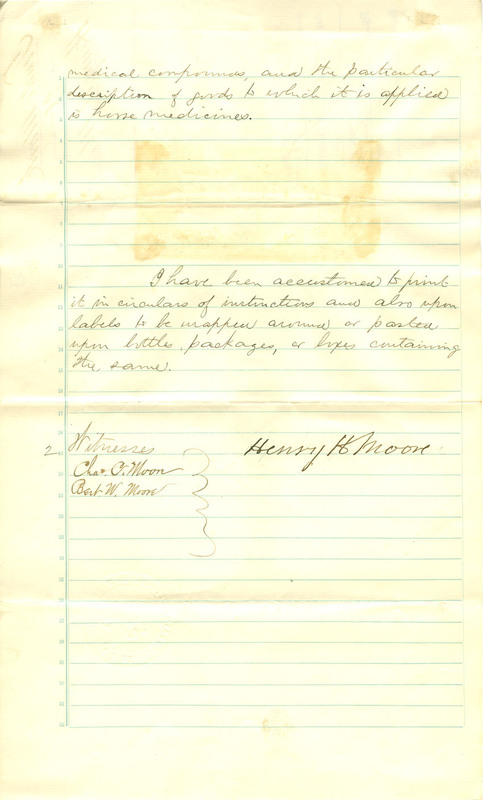 medical compounds, and the particular
description of goods to which it is applied
is horse medicines.
I have been accustomed to print
it in circulars of instructions and also upon
labels to be wrapped around or pasted
upon bottles, packages, or boxes containing
the same.
2 Witnesses Henry H Moore
Chas. O. Moon
Bert W. Moore